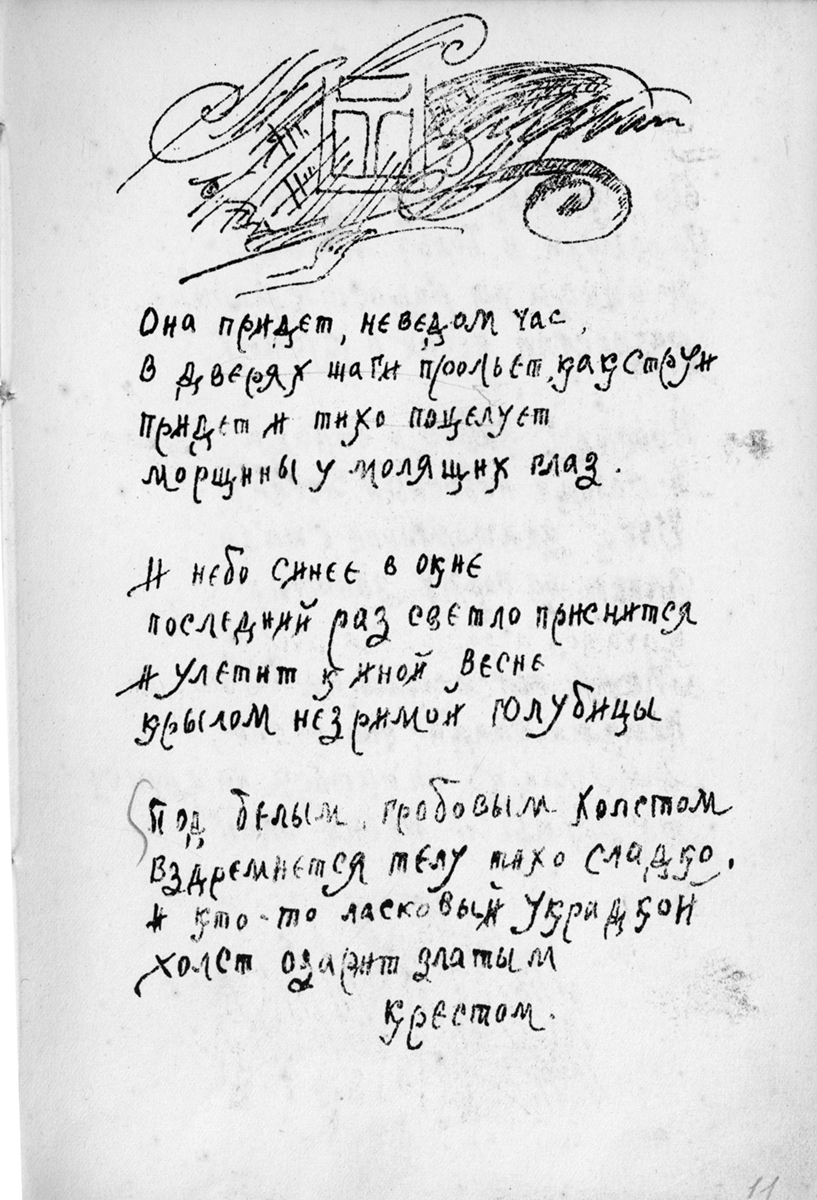 Она придет, неведом час,
В дверях шаги прольет, как струи
придет и тихо поцелует
морщины у молящих глаз.
И небо синее в окне
последний раз светло приснится
и улетит к иной весне
крылом незримой голубицы
Под белым гробовым холстом
вздремнется телу тихо сладко.
и кто-то ласковый украдкой
холст озарит златым
крестом.
11